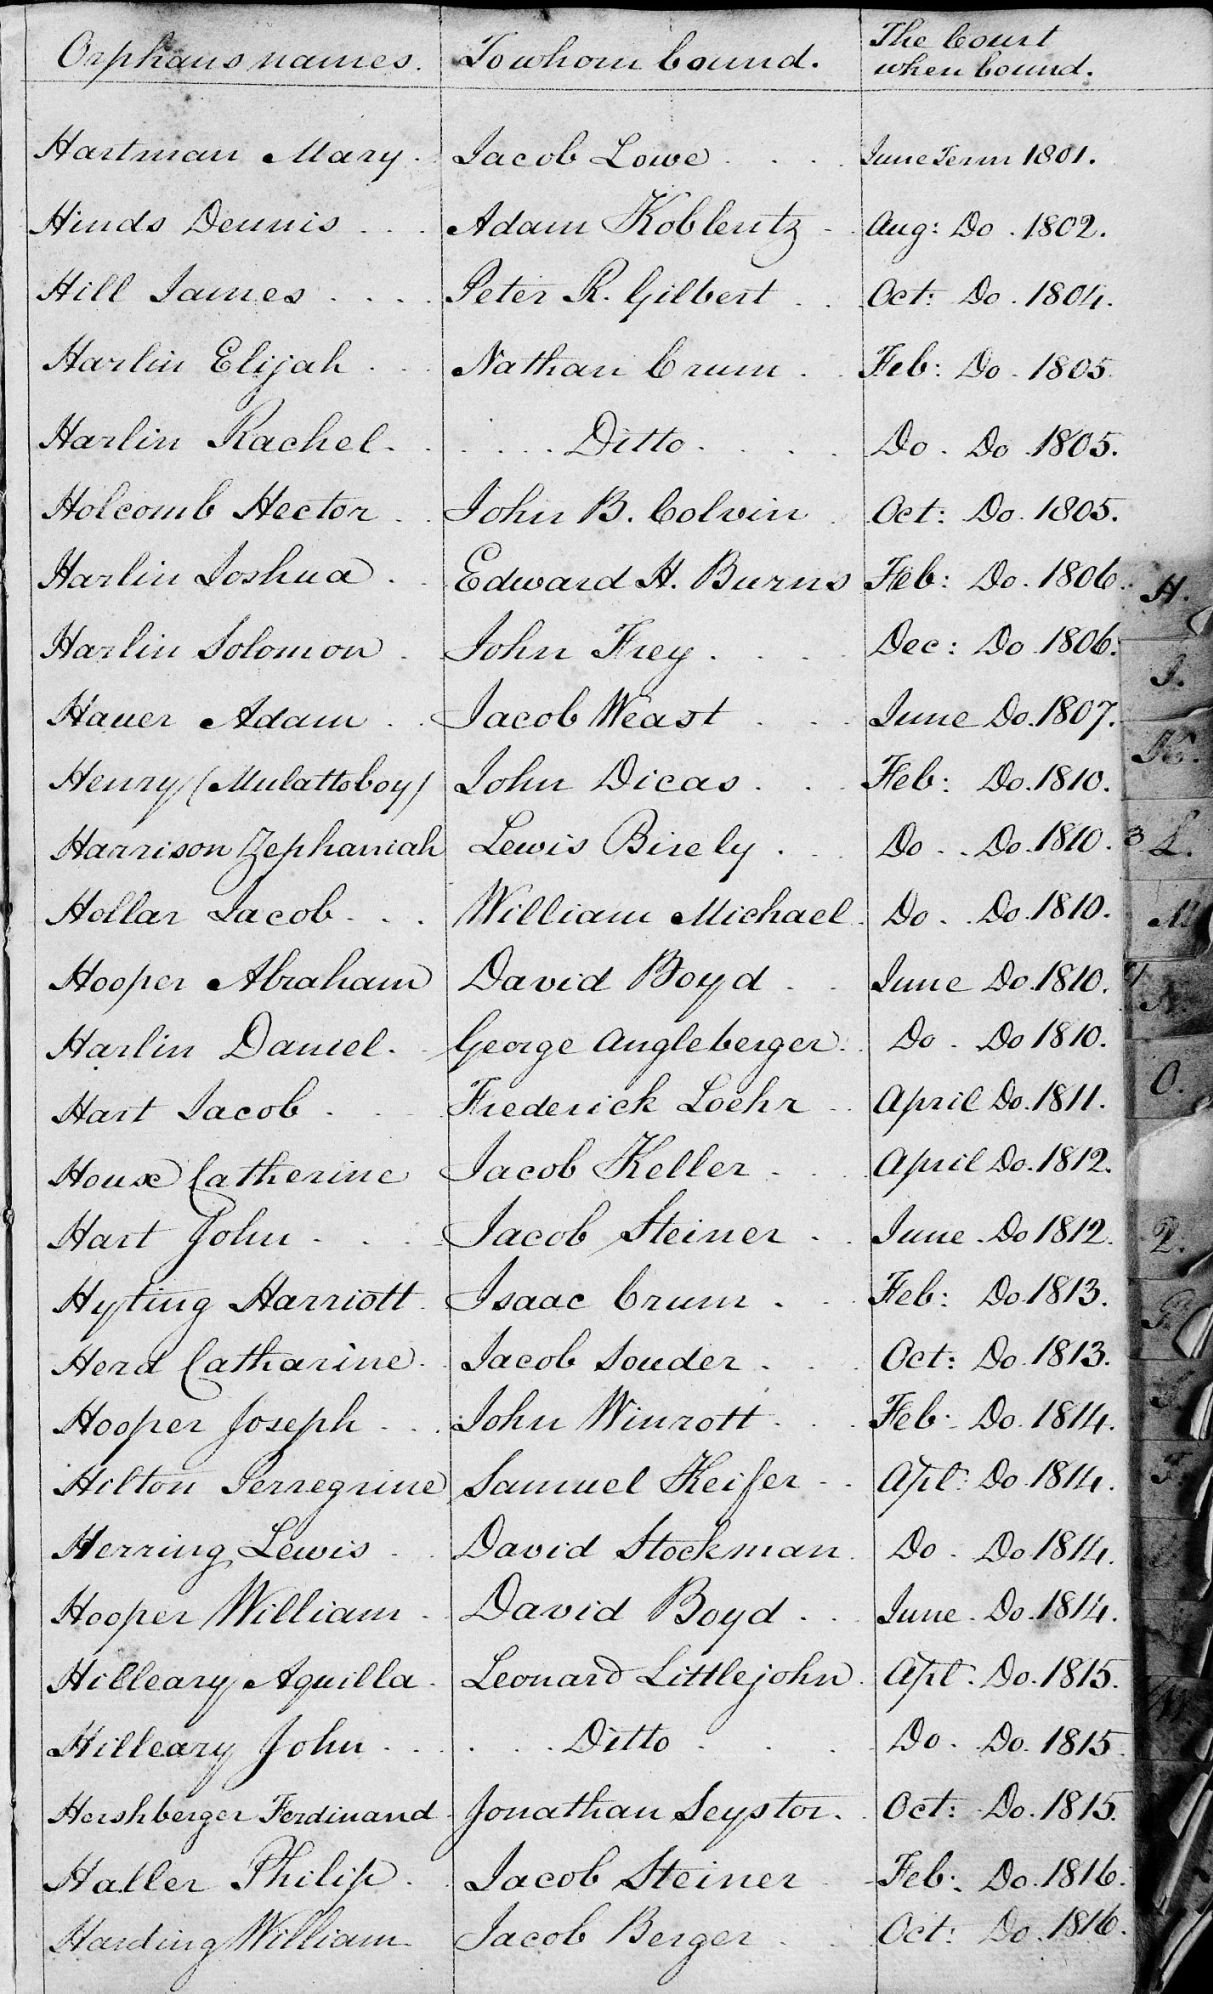 Orphans names. To whom bound. The Court when bound.
Hartman Mary. Jacob Lowe . . . June Term 1801.
Hinds Dennis . . . Adam Koblentz . Aug: Do . 1802.
Hill James . . . . Peter R. Gilbert . . Oct: Do . 1804.
Harlin Elijah . . . Nathan Crum . . Feb: Do . 1805.
Harlin Rachel . . . . . Ditto . . . . Do . Do . 1805.
Holcomb Hector . . John B. Colvin . Oct: Do . 1805.
Harlin Joshua . . Edward H. Burns Feb: Do . 1806.
Harlin Solomon . John Frey . . . . Dec: Do . 1806.
Hauer Adam . . Jacob Weast . . . June Do . 1807.
Henry (Mulatto boy) John Dicas . . . Feb: Do . 1810.
Harrison Zephaniah Lewis Birely . . . Do . . Do . 1810.
Hollar Jacob . . . William Michael . Do . Do . 1810.
Hooper Abraham David Boyd . . June Do . 1810.
Harlin Daniel . George Angleberger . Do . Do 1810.
Hart Jacob . . . Frederick Loehr . . April Do . 1811.
Houx Catherine Jacob Keller . . April Do . 1812.
Hart John . . . . Jacob Steiner . . June . Do 1812.
Hyting Harriott . Isaac Crum . . . Feb: Do 1813.
Herd Catharine . Jacob Souder . . . Oct: Do . 1813.
Hooper Joseph . . . John Winrott . . . Feb: Do . 1814.
Hilton Perregrine Samuel Keifer . . Apl: Do . 1814.
Herring Lewis . . David Stockman . Do . Do 1814.
Hooper William . David Boyd . . . June . Do . 1814.
Hilleary Aquilla . Leonard Littlejohn . Apl . Do . 1815.
Hilleary John . . . . . . Ditto . . . . Do . Do . 1815.
Hershberger Ferdinand . Jonathan Seystor . Oct: Do . 1815.
Haller Philip . . Jacob Steiner . . Feb: Do . 1816.
Harding William . Jacob Berger . . Oct: Do . 1816.
H.
I.
K.
3 L.
M
N.
O.